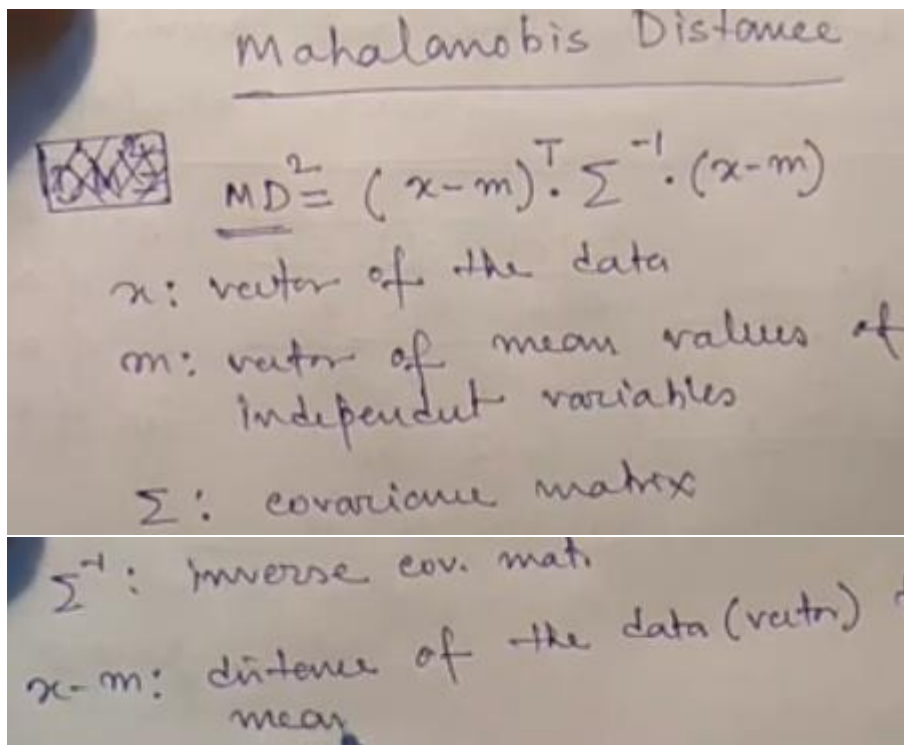 Mahalanobis Distance
MD² = (x-m)ᵀ · Σ⁻¹ · (x-m)
x: vector of the data
m: vector of mean values of
independent variables
Σ: covariance matrix
Σ⁻¹: inverse cov. mat.
x-m: distance of the data (vector)
mean